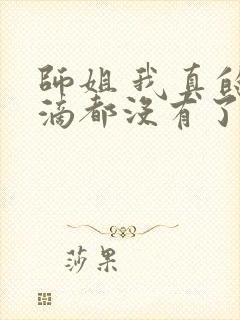 師姐我真的
滴都沒有了
莎果